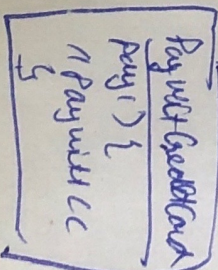 PayWithCreditCard
pay() {
// Pay with CC
}